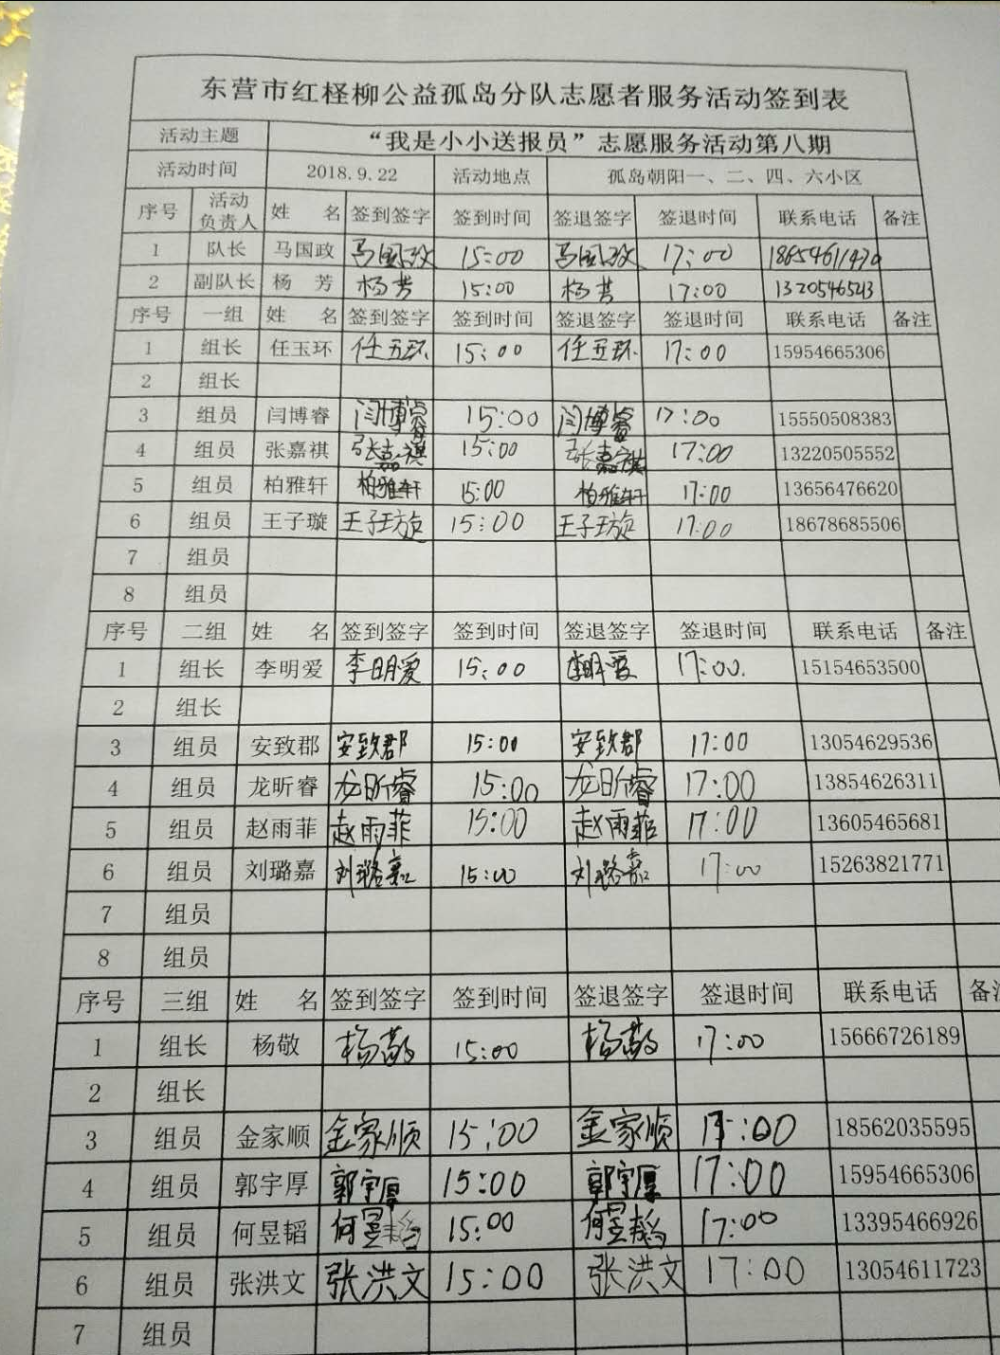 东营市红柽柳公益孤岛分队志愿者服务活动签到表
活动主题 “我是小小送报员”志愿服务活动第八期
活动时间 2018.9.22 活动地点 孤岛朝阳一、二、四、六小区
序号 活动负责人 姓 名 签到签字 签到时间 签退签字 签退时间 联系电话 备注
1 队长 马国政 马国政 15:00 马国政 17:00
2 副队长 杨 芳 杨芳 15:00 杨芳 17:00 1320546543
序号 一组 姓 名 签到签字 签到时间 签退签字 签退时间 联系电话 备注
1 组长 任玉环 任玉环 15:00 任玉环 17:00 15954665306
2 组长
3 组员 闫博睿 闫博睿 15:00 闫博睿 17:00 15550508383
4 组员 张嘉祺 张嘉祺 15:00 张嘉祺 17:00 13220505552
5 组员 柏雅轩 柏雅轩 15:00 柏雅轩 17:00 13656476620
6 组员 王子璇 王子璇 15:00 王子璇 17:00 18678685506
7 组员
8 组员
序号 二组 姓 名 签到签字 签到时间 签退签字 签退时间 联系电话 备注
1 组长 李明爱 李明爱 15:00 李明爱 17:00. 15154653500
2 组长
3 组员 安致郡 安致郡 15:00 安致郡 17:00 13054629536
4 组员 龙昕睿 龙昕睿 15:00 龙昕睿 17:00 13854626311
5 组员 赵雨菲 赵雨菲 15:00 赵雨菲 17:00 13605465681
6 组员 刘璐嘉 刘璐嘉 15:00 刘璐嘉 17:00 15263821771
7 组员
8 组员
序号 三组 姓 名 签到签字 签到时间 签退签字 签退时间 联系电话 备注
1 组长 杨敬 杨敬 15:00 杨敬 17:00 15666726189
2 组长
3 组员 金家顺 金家顺 15:00 金家顺 17:00 18562035595
4 组员 郭宇厚 郭宇厚 15:00 郭宇厚 17:00 15954665306
5 组员 何昱韬 何昱韬 15:00 何昱韬 17:00 13395466926
6 组员 张洪文 张洪文 15:00 张洪文 17:00 13054611723
7 组员